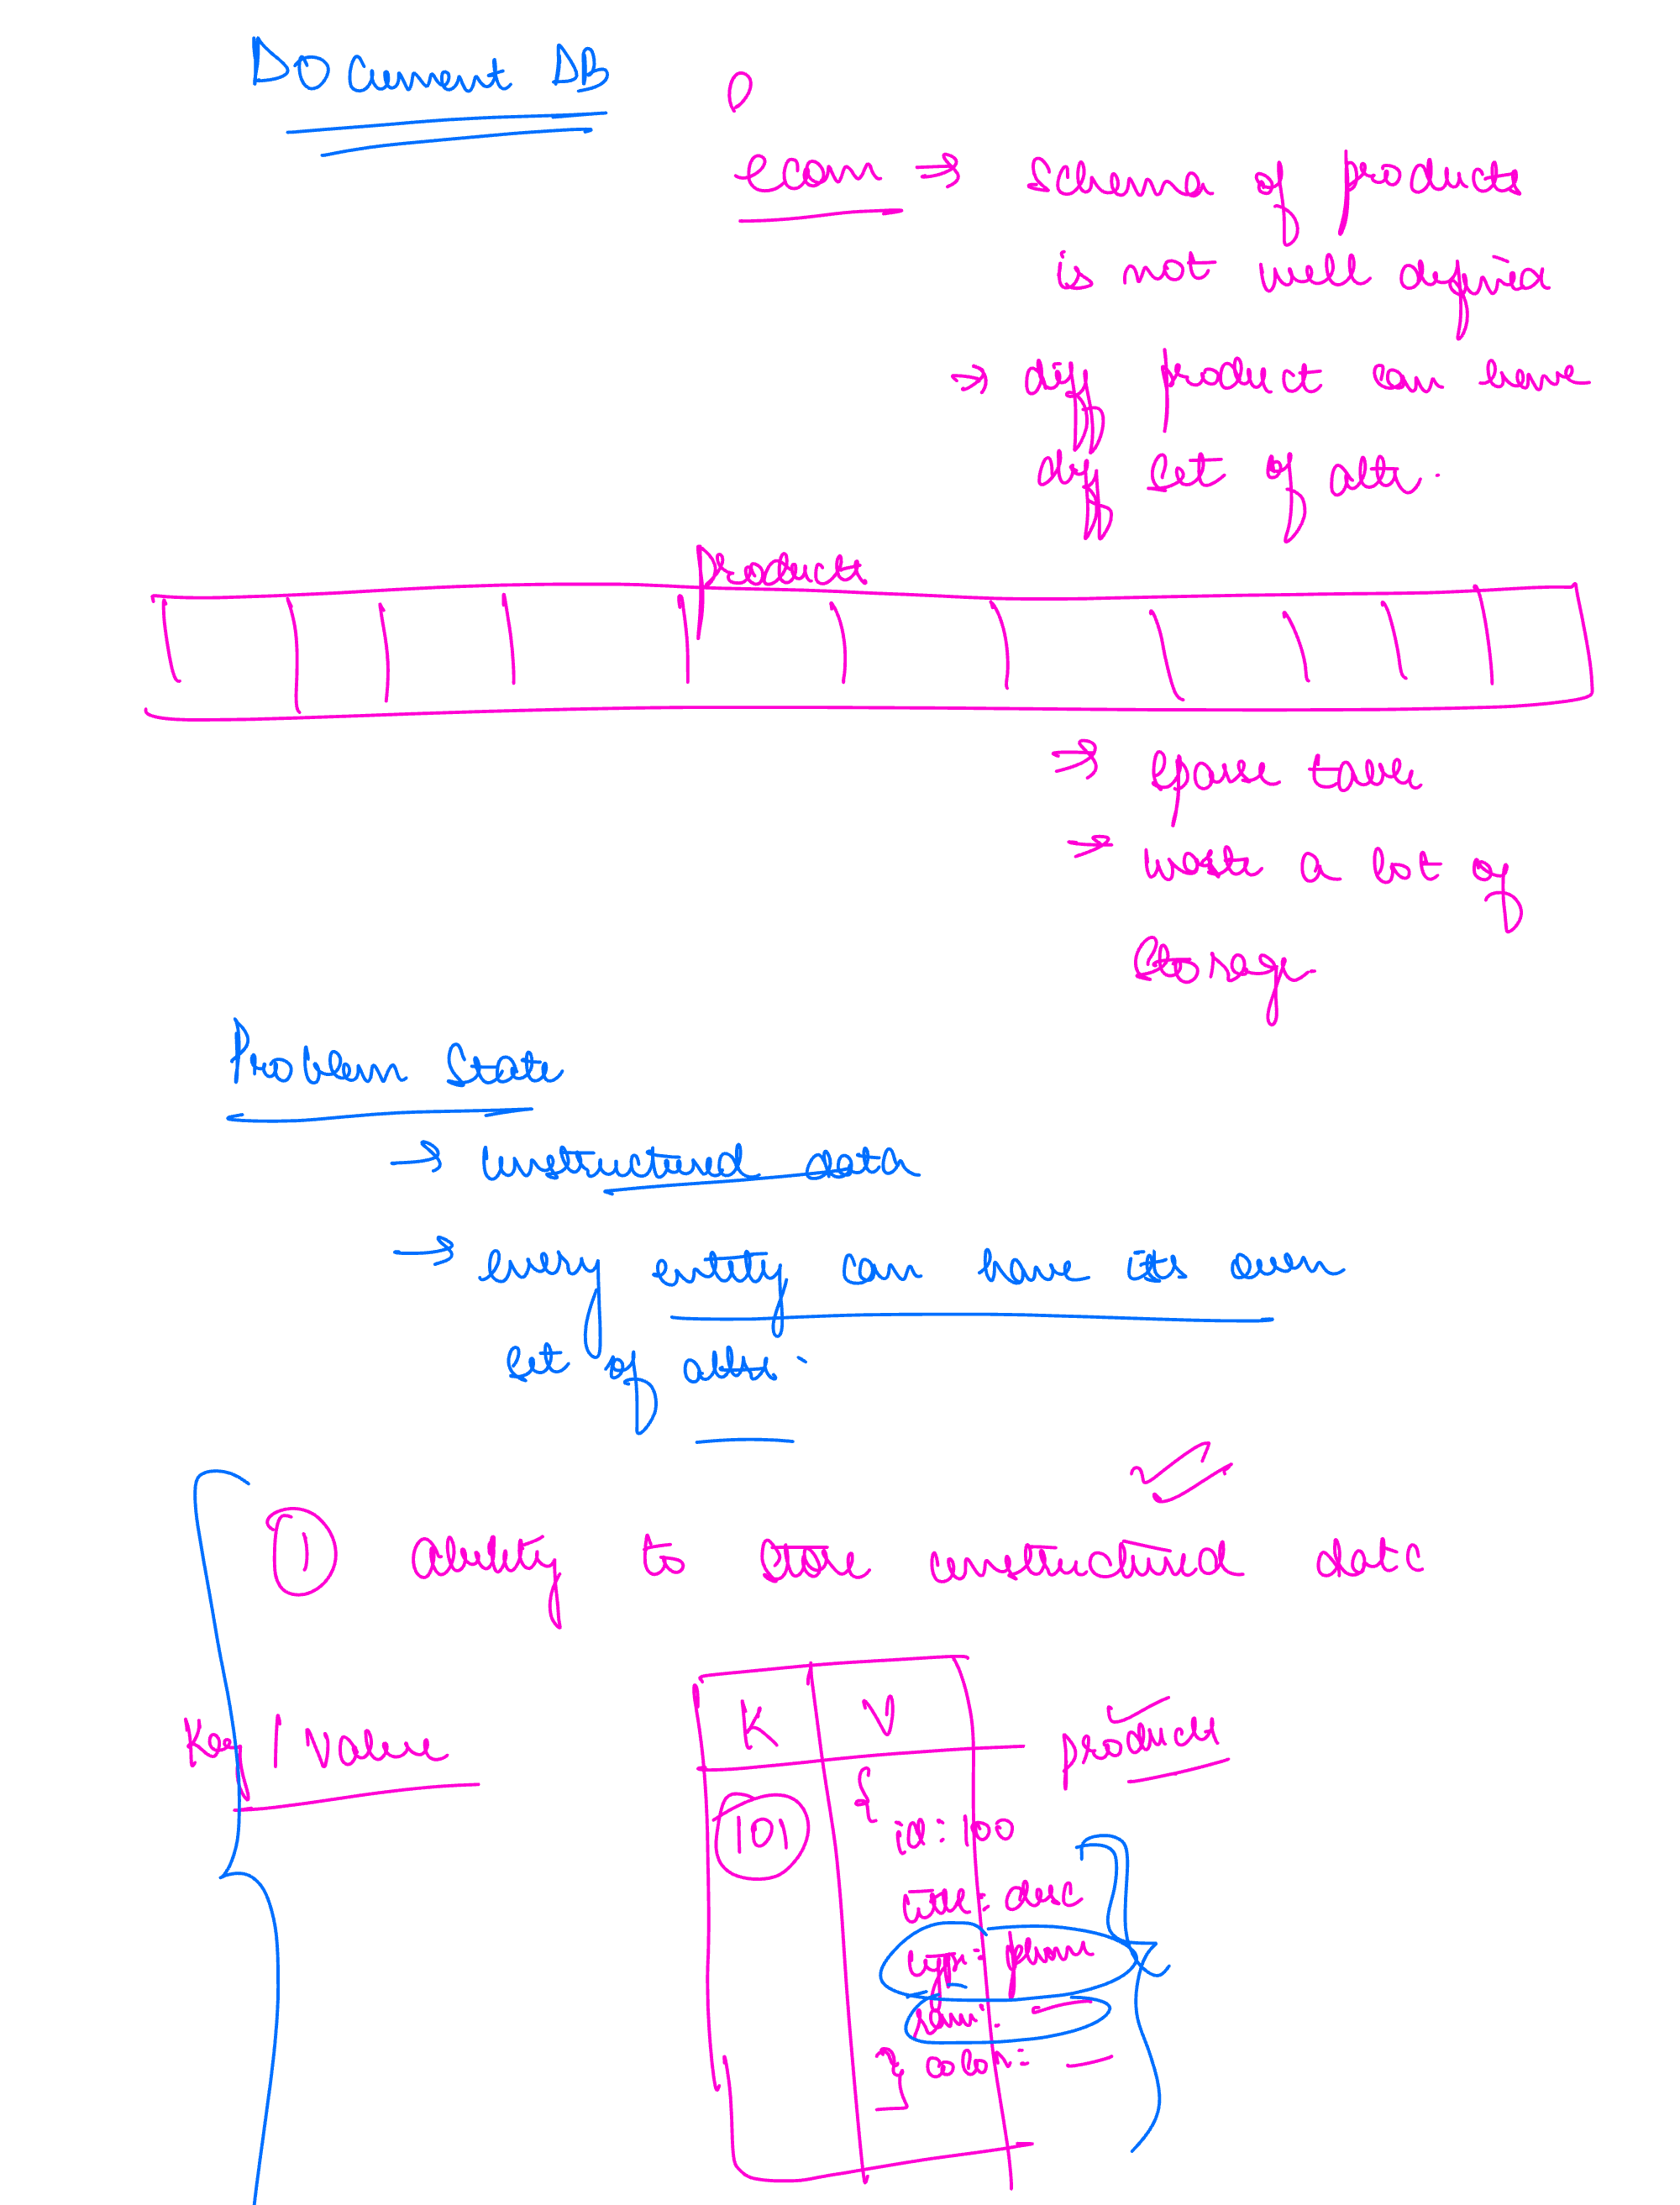 Document DB
ecom ⇒ schema of products
is not well defined
→ diff product can have
diff set of attr.
products
⇒ sparse table
→ waste a lot of
storage
Problem State
→ unstructured data
→ every entity can have its own
set of attr.
① ability to store unstructured data
Key / Value
K V
products
101
{
id: 100
title: desc
type: phone
color:
}